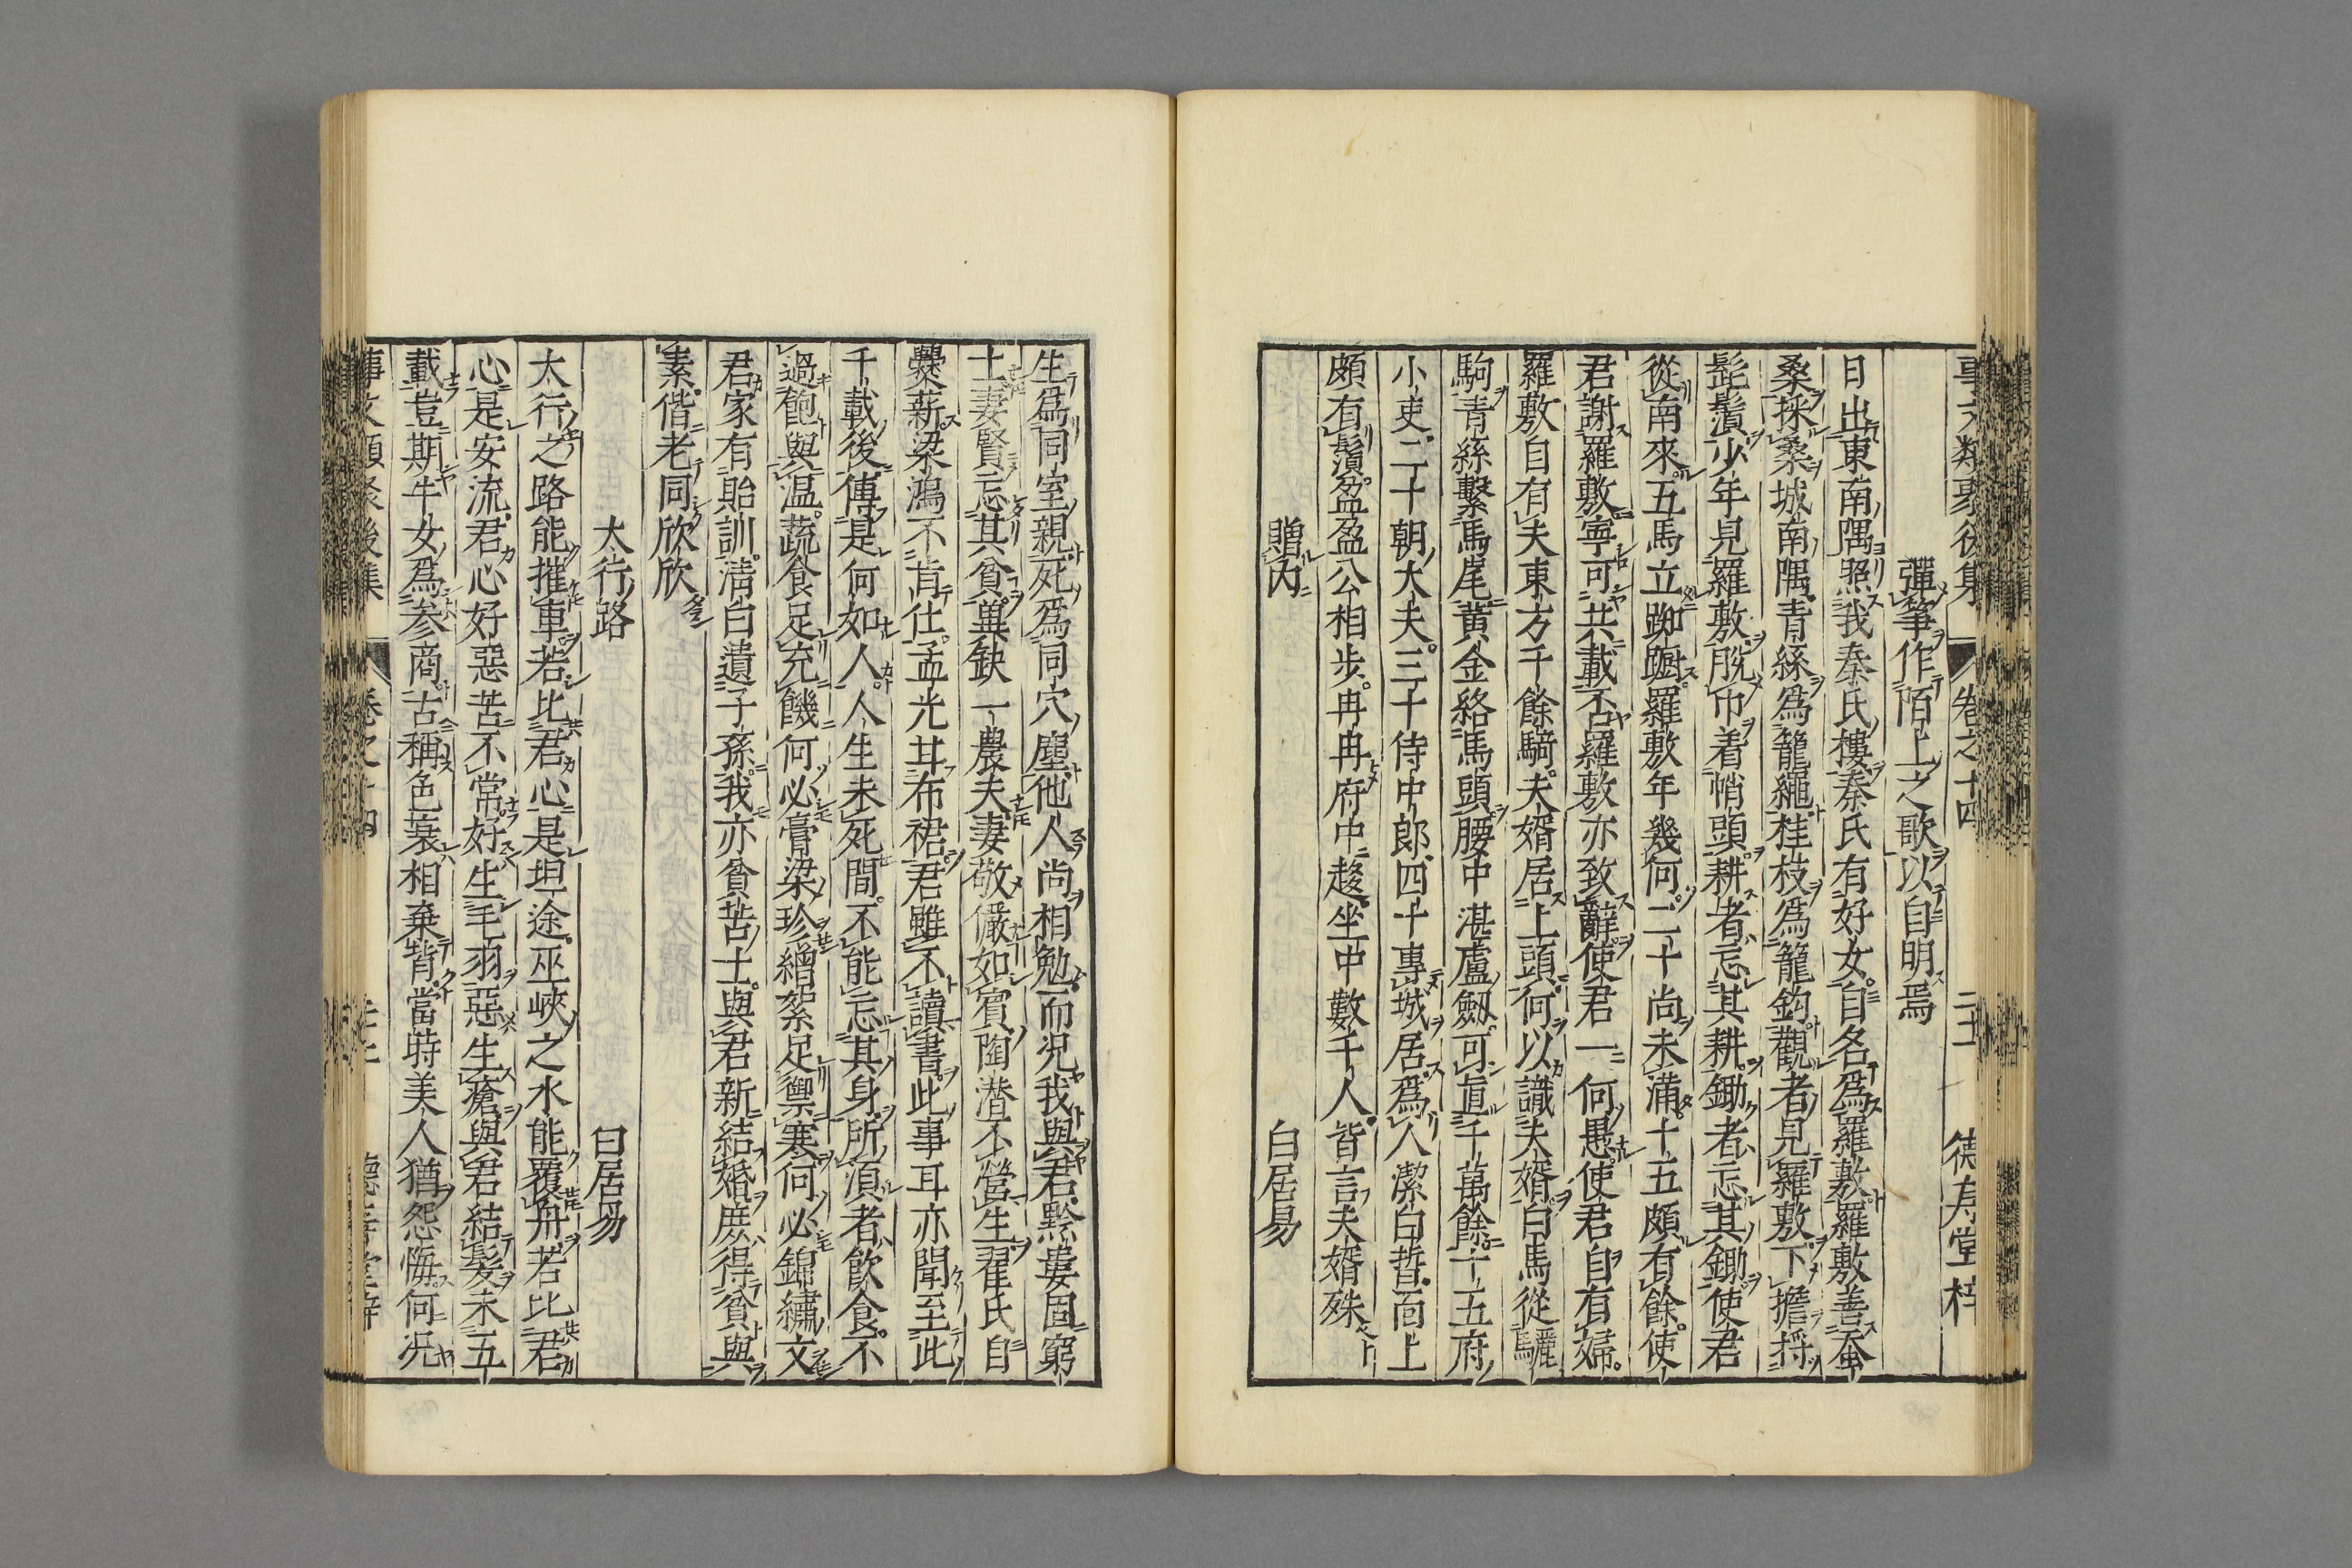 事文類聚後集 卷之十四 二十一 德寿堂梓
彈筝作陌上之歌以自明焉
日出東南隅照我秦氏樓秦氏有好女自名爲羅敷羅敷善蚕
桑採桑城南隅青絲爲籠繩桂枝爲籠鈎觀者見羅敷下擔捋
髭鬚少年見羅敷脫巾着帩頭耕者忘其耕鋤者忘其鋤使君
從南來五馬立踟躕羅敷年幾何二十尚未滿十五頗有餘使
君謝羅敷寧可共載否羅敷亦致辭使君一何愚使君自有婦
羅敷自有夫東方千餘騎夫婿居上頭何以識夫婿白馬從驪
駒青絲繫馬尾黃金絡馬頭腰中湛盧劔可直千萬餘十五府
小吏二十朝大夫三十侍中郎四十專城居爲人潔白晢面上
頗有鬚盈盈公相步冉冉府中趍坐中數千人皆言夫婿殊
贈内 白居易
生爲同室親死爲同穴塵他人尚相勉而况我與君黔婁固窮
士妻賢忘其貧兾缺一農夫妻敬儼如賓陶潛不營生翟氏自
爨薪梁鴻不肯仕孟光甘布裙君雖不讀書此事耳亦聞至此
千載後傳是何如人人生未死間不能忘其身所湏者飲食不
過飽與温蔬食足充饑何必膏梁珍繒絮足禦寒何必錦繡文
君家有貽訓清白遺子孫我亦貧苦士與君新結婚庶得貧與
素偕老同欣欣
大行路 白居易
太行之路能摧車若比君心是坦途巫峽之水能覆舟若比君
心是安流君心好惡苦不常好生毛羽惡生瘡與君結髮未五
載豈期牛女爲参商古稱色衰相棄背當時美人猶怨悔何况
事文類聚後集 卷之十四